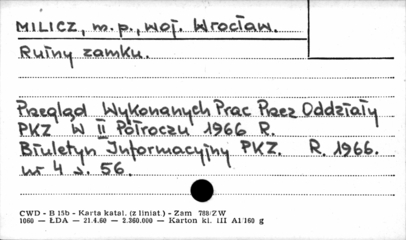 MILICZ, m.p., woj. Wrocław.
Ruiny zamku.
Przegląd Wykonanych Prac Przez Oddziały
PKZ W II Półroczu 1966 R.
Biuletyn Informacyjny PKZ. R. 1966.
nr 4 s. 56.
CWD - B 15b - Karta katal. (z liniat.) - Zam 788/ZW
1060 — ŁDA — 21.4.60 - 2.360.000 — Karton kl. III A1 160 g